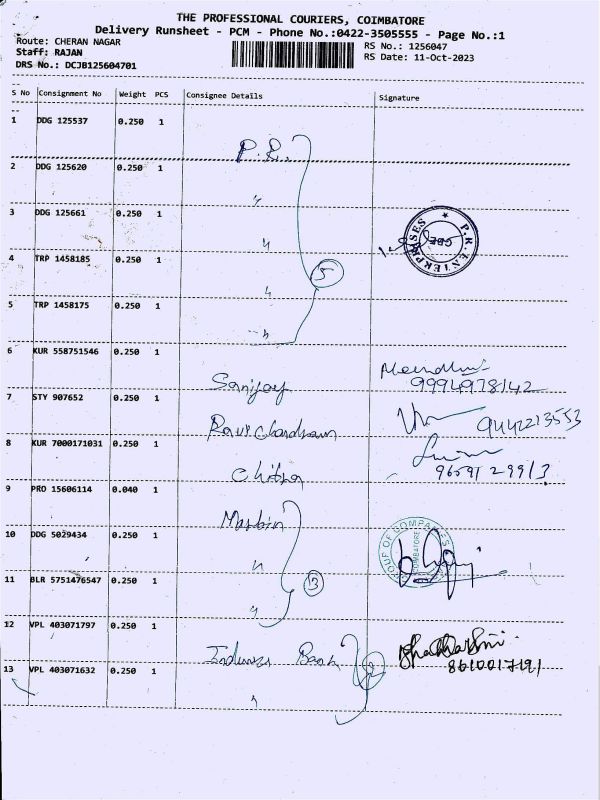 THE PROFESSIONAL COURIERS, COIMBATORE
Delivery Runsheet - PCM - Phone No.:0422-3505555 - Page No.:1
Route: CHERAN NAGAR
RS No.: 1256047
Staff: RAJAN
RS Date: 11-Oct-2023
DRS No.: DCJB125604701
S No Consignment No Weight PCS Consignee Details Signature
1 DDG 125537 0.250 1
P.R.
2 DDG 125620 0.250 1
"
3 DDG 125661 0.250 1
P.R. ENTERPRISES
CBE
"
4 TRP 1458185 0.250 1
5
"
5 TRP 1458175 0.250 1
"
6 KUR 558751546 0.250 1
Sanjjay
9994978142
7 STY 907652 0.250 1
Ravichandran
9442213553
8 KUR 7000171031 0.250 1
Chitra
9659129913
9 PRO 15606114 0.040 1
Martin
10 DDG 5029434 0.250 1
GROUP OF COMPANIES
COIMBATORE
"
11 BLR 5751476547 0.250 1
3
"
12 VPL 403071797 0.250 1
Indusus Bank
8610017191
13 VPL 403071632 0.250 1
2
"